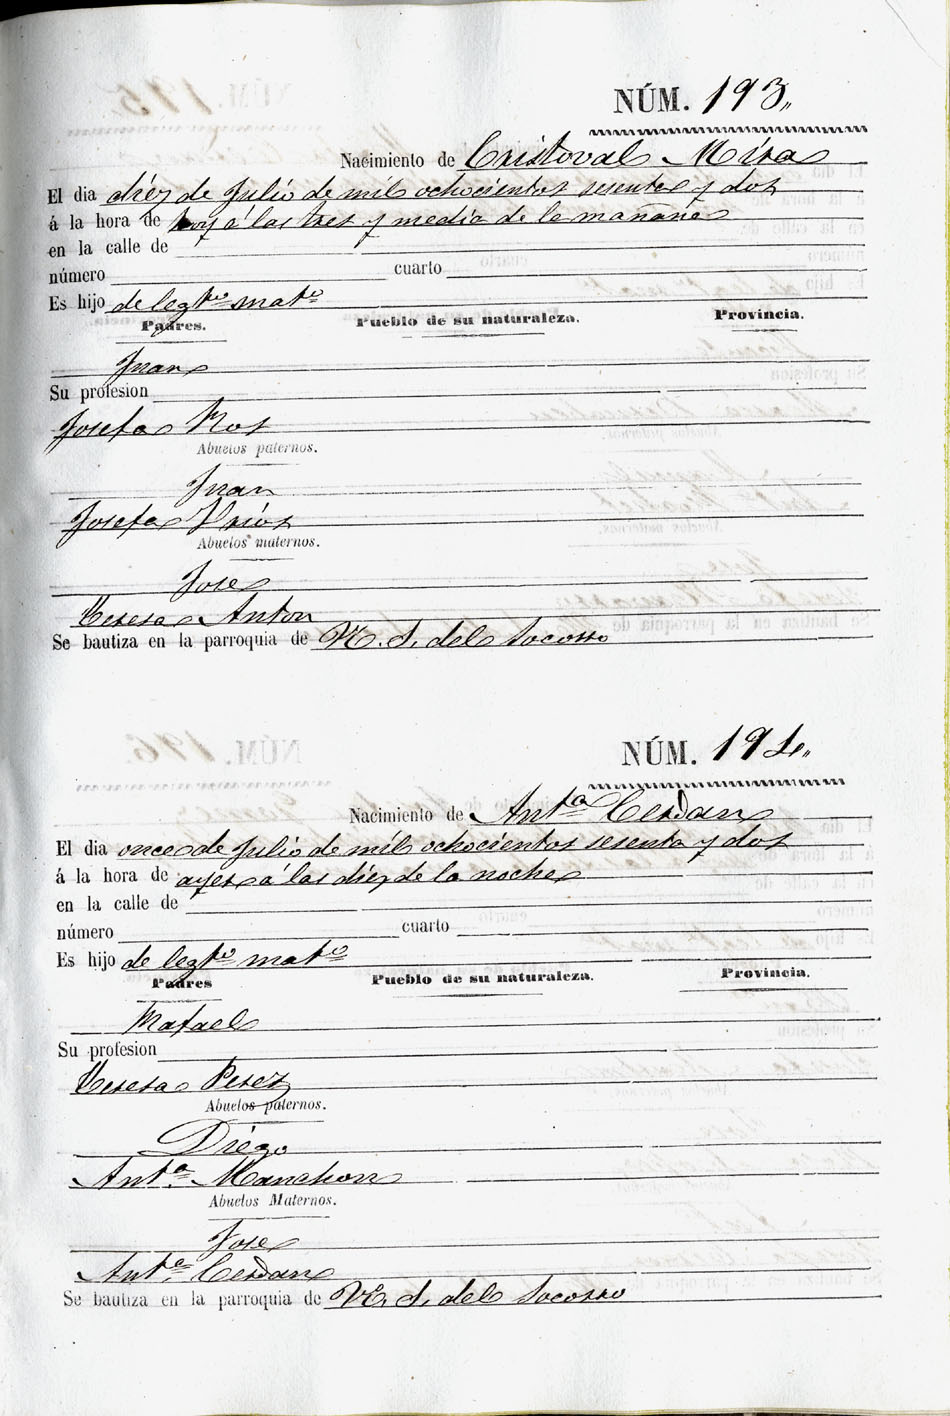 NÚM. 193.,
Nacimiento de Cristoval Mira
El dia diéz de Julio de mil ochocientos sesenta y dos
á la hora de hoy á las tres y media de la mañana
en la calle de
número cuarto
Es hijo de legto mato
Padres. Pueblo de su naturaleza. Provincia.
Juan
Su profesion
Josefa Ros
Abuelos paternos.
Juan
Josefa Uriós
Abuelos maternos.
Jose
Teresa Anton
Se bautiza en la parroquia de N. S. del Socorro
NÚM. 194.,
Nacimiento de Anta Cerdan
El dia once de Julio de mil ochocientos sesenta y dos
á la hora de ayer á las diez de la noche
en la calle de
número cuarto
Es hijo de legto mato
Padres Pueblo de su naturaleza. Provincia.
Rafael
Su profesion
Teresa Perez
Abuelos paternos.
Diégo
Anta Manchon
Abuelos Maternos.
Jose
Anta Cerdan
Se bautiza en la parroquia de N. S. del Socorro